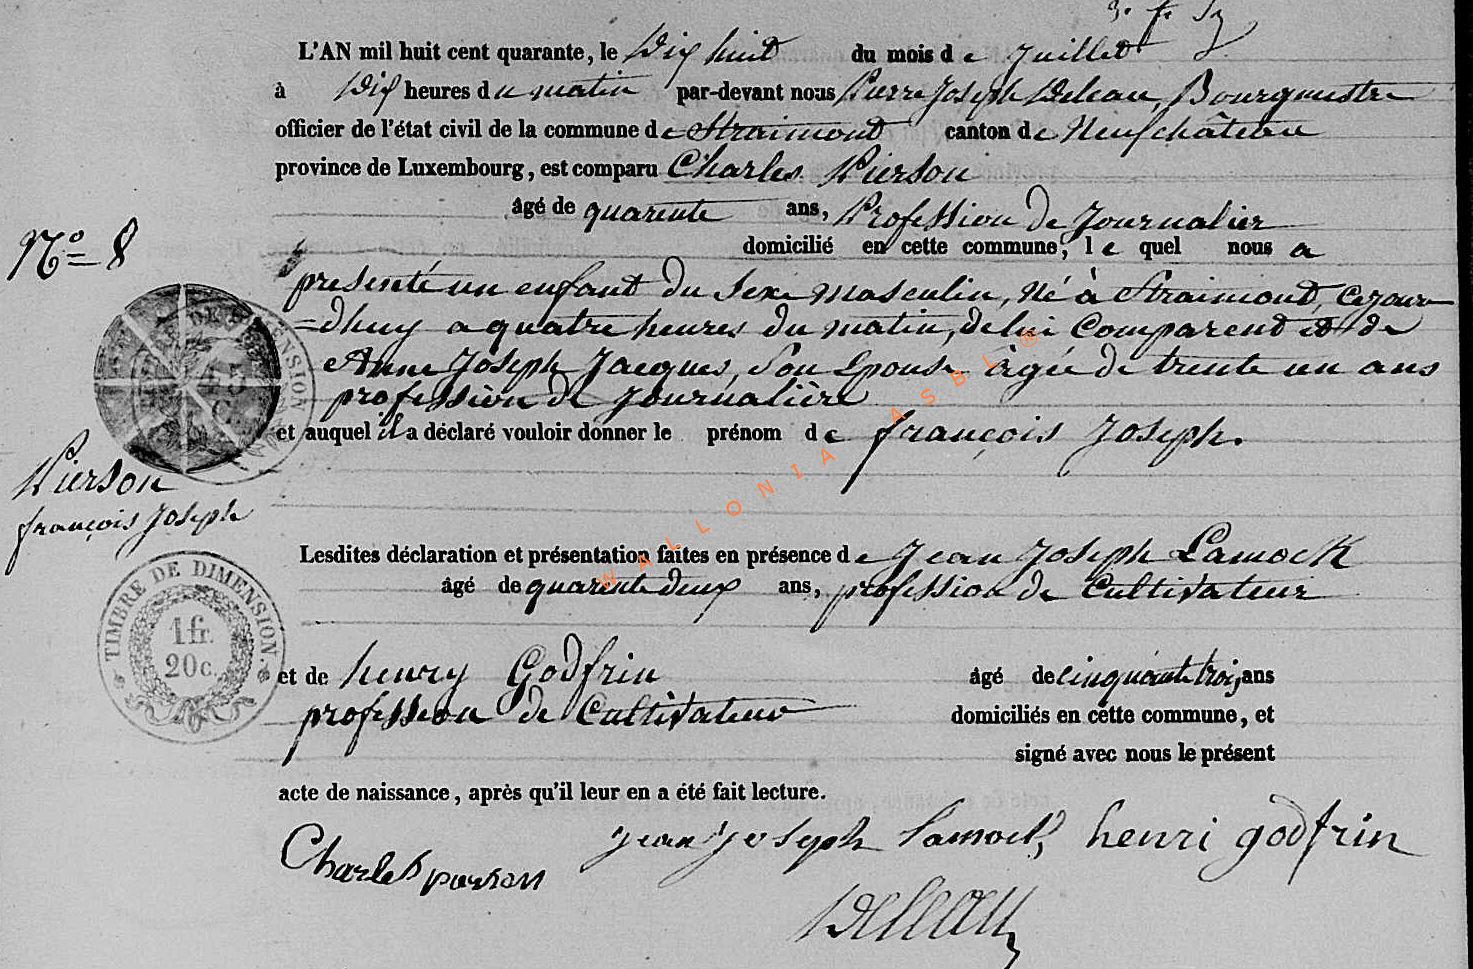 L'AN mil huit cent quarante, le Dix huit du mois de Juillet
à Dix heures du matin par-devant nous Pierre Joseph Deleau, Bourgmestre
officier de l'état civil de la commune de Straimont canton de Neufchâteau
province de Luxembourg, est comparu Charles Pierson
âgé de quarente ans, Profession de Journalier
domicilié en cette commune, le quel nous a
N° 8
presenté un enfant du Sexe masculin, Né à Straimont, Cejour
=dhuy a quatre heures du matin, de lui Comparent et de
Anne Joseph Jacques, Son Epouse âgée de trente un ans
profession de Journalière
et auquel il a déclaré vouloir donner le prénom de françois Joseph.
Pierson
françois Joseph
Lesdites déclaration et présentation faites en présence de Jean Joseph Lamock
âgé de quarente deux ans, profession de Cultivateur
TIMBRE DE DIMENSION.
1 fr.
20 c.
et de henry Godfrin âgé de cinquante trois ans
profession de Cultivateur domiciliés en cette commune, et
signé avec nous le présent
acte de naissance, après qu'il leur en a été fait lecture.
Charles pierson Jean Joseph Lamock, henri godfrin
Deleau
WALLONIA ASBL ®